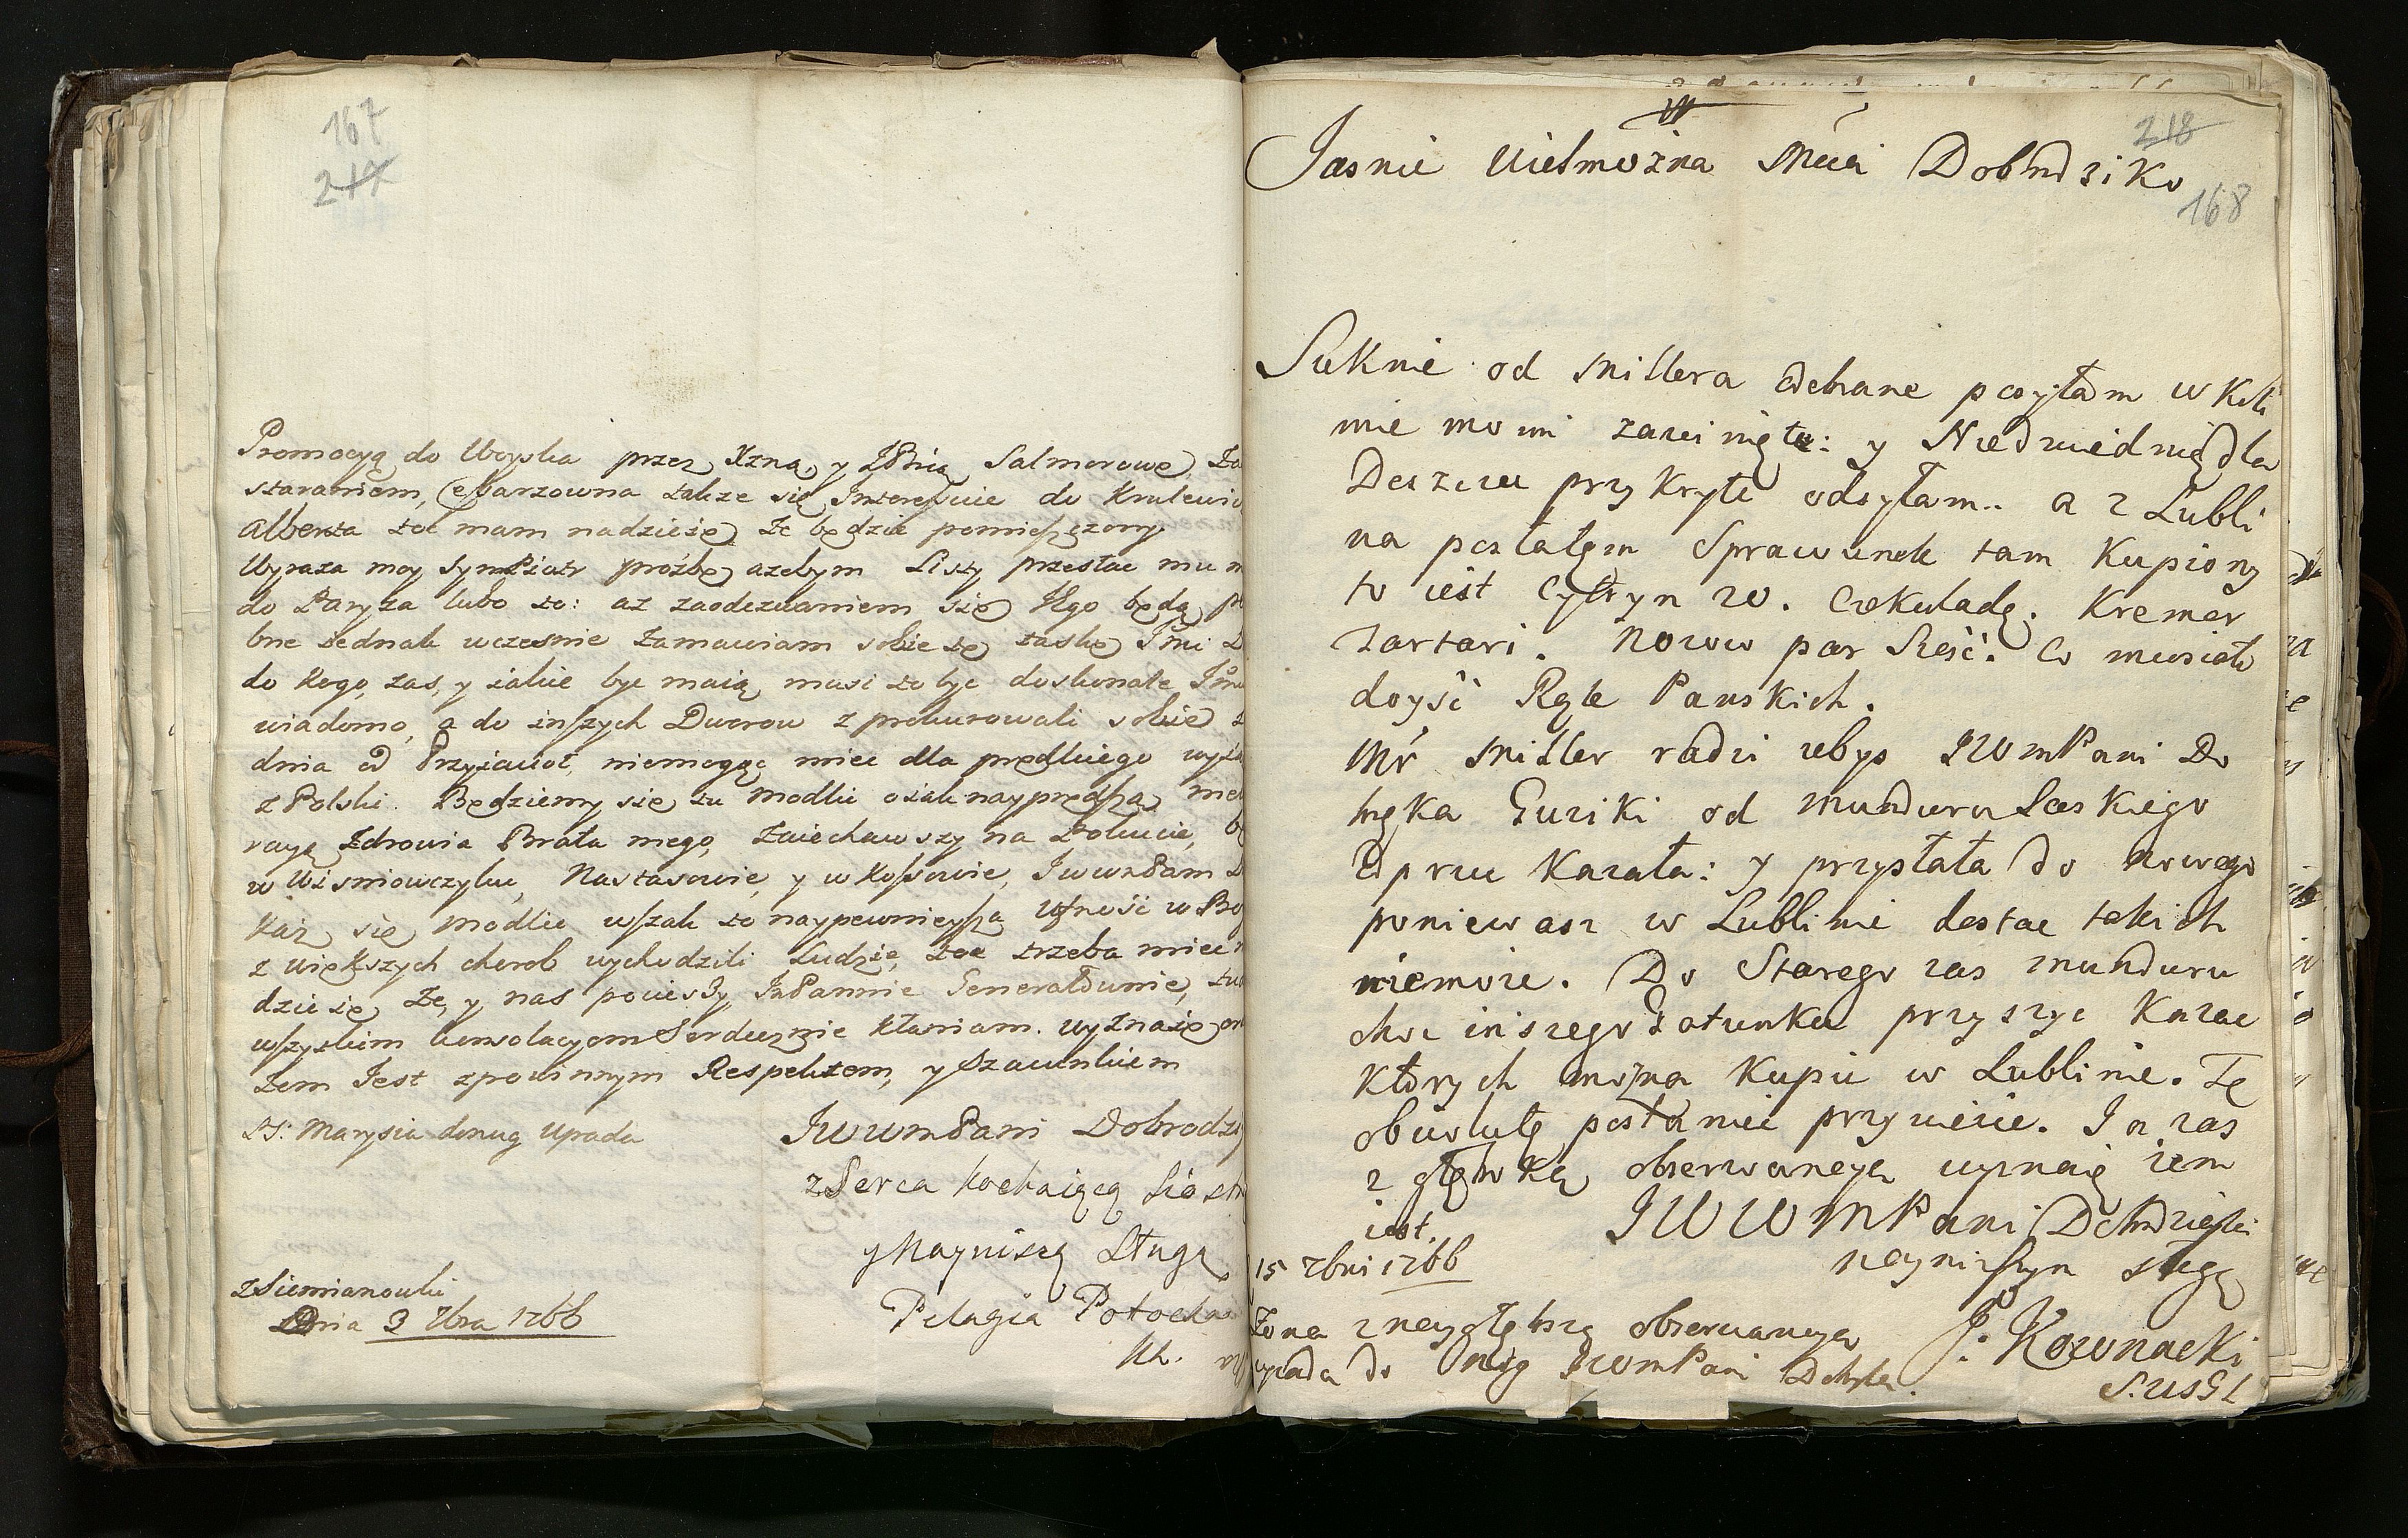 167
217
Promocyą do Woyska przez Xzną, y JPnią Salmorowę, Za
staraniem, także się Interessuie do Krulewic
Alberta toć mam nadzieię że będzie pomieszczony
Wyraza moy Syn Piotr prożbę azebym Listy przesłac mu
do Paryza lubo to: az zaodezwaniem się Ikgo będą
bne iednak wczesnie zamawiam sobie tę łaskę Jmci D
do kogo, zas, y iakie byc maią, musi to byc doskonale Jmci
wiadomo, a do inszych Dworow zprokurowali sobie
dnia od Przyiacioł, niemogąc miec dla prędkiego wyia
z Polski. Będziemy się tu modlić o iak nayprędszą
racyą Zdrowia Brata mego, Zaiechawszy na Pokucie,
w Wisniowczyku, Nastasowie, y w Kossowie, Jwwmpam D
Każ się modlic wszak to naypewnieysza Ufność w Bog
z większych chorob wychodzili Ludzie, toc trzeba miec
dzieię Ze, y nas pocieszy, Jmpannie Generałownie,
wszyskim konsolacyom Serdecznie kłaniam. wyznaię
żem Jest zpowinnym Respektem, y Szacunkiem
PS: Marysia donug Upada
JWWmPani Dobrodzi
zSerca kochaiącą Siostr
y Nayniszą Sługą
zSiemianowki
Dnia 3 7bra 1766
Pelagia Potocka
Kk.
218
168
Jasnie Wielmożna Mcia Dobrodziko
Suknie od Millera odebrane posyłam w Kili
mie moim zawinięte: y Niedwiednią dla
Deszczu przykryte odsyłam.. a z Lubli
na posłałem Sprawunek tam Kupiony
to iest Cytryn 20. Czekuladę. Kremor
Tartari. Nozow par Sześć. Co musiało
doyść Rąk Panskich.
Mr Miller radzi żebys JWmPani Do
bryka Guziki od munduru Saskiego
odpruc Kazała: y przysłała do nowego
poniewasz w Lublinie dostac takich
niemoże. Do Starego zas munduru
choc inszego Gatunku przyszyc Kazac
ktorych można Kupic w Lublinie. Tę
obwolutę posłaniec przywiezie. Ja zas
z głęboką obserwancyą wyznaię żem
iest.
JWWMPani Dobrodzieyki
nayniszym sługą
15 7bri 1766
Zona z naygłębszą obserwancyą
upada do nóg JWWmPani Dobrki.
J. Kownacki
S.USGL